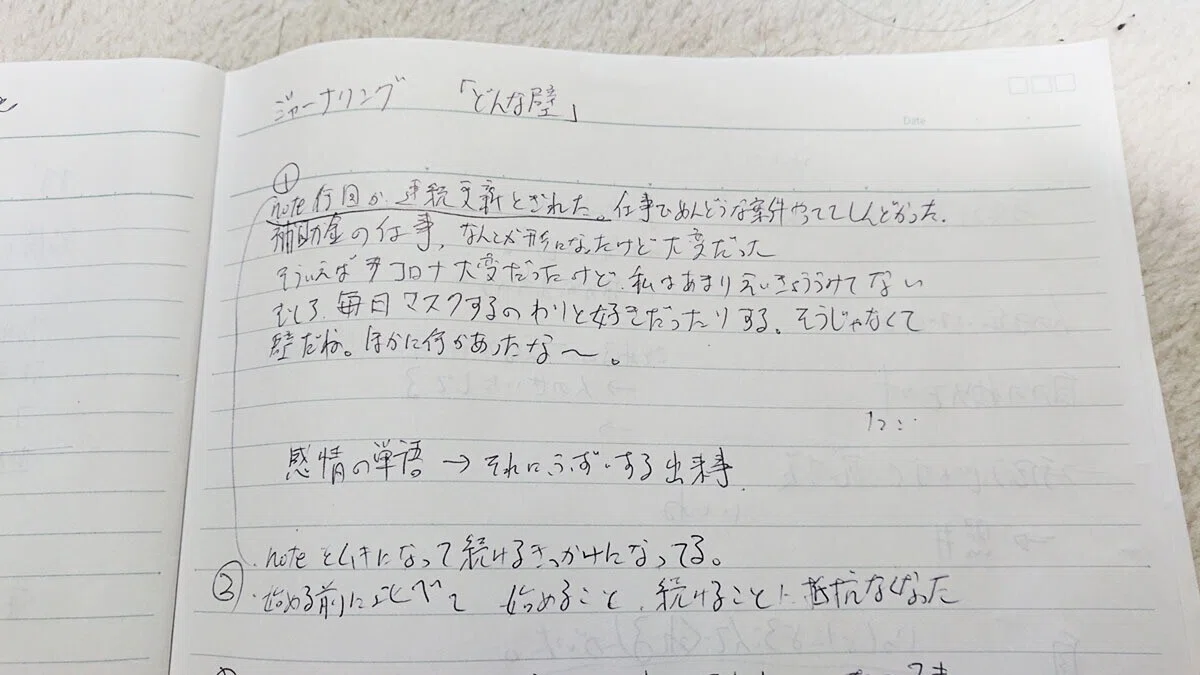 ジャーナリング 「どんな壁」
Date
①
note何回か連続更新とぎれた。仕事でめんどうな案件やっててしんどかった.
補助金の仕事、なんとか形になったけど大変だった
そういえばコロナ大変だったけど、私はあまりえいきょううけてない
むしろ、毎日マスクするのわりと好きだったりする。そうじゃなくて
壁だね。ほかに何かあったな〜。
感情の単語 → それに する出来事.
・noteとムキになって続けるきっかけになってる。
②
・始める前に比べて 始めること、続けることに抵抗なくなった